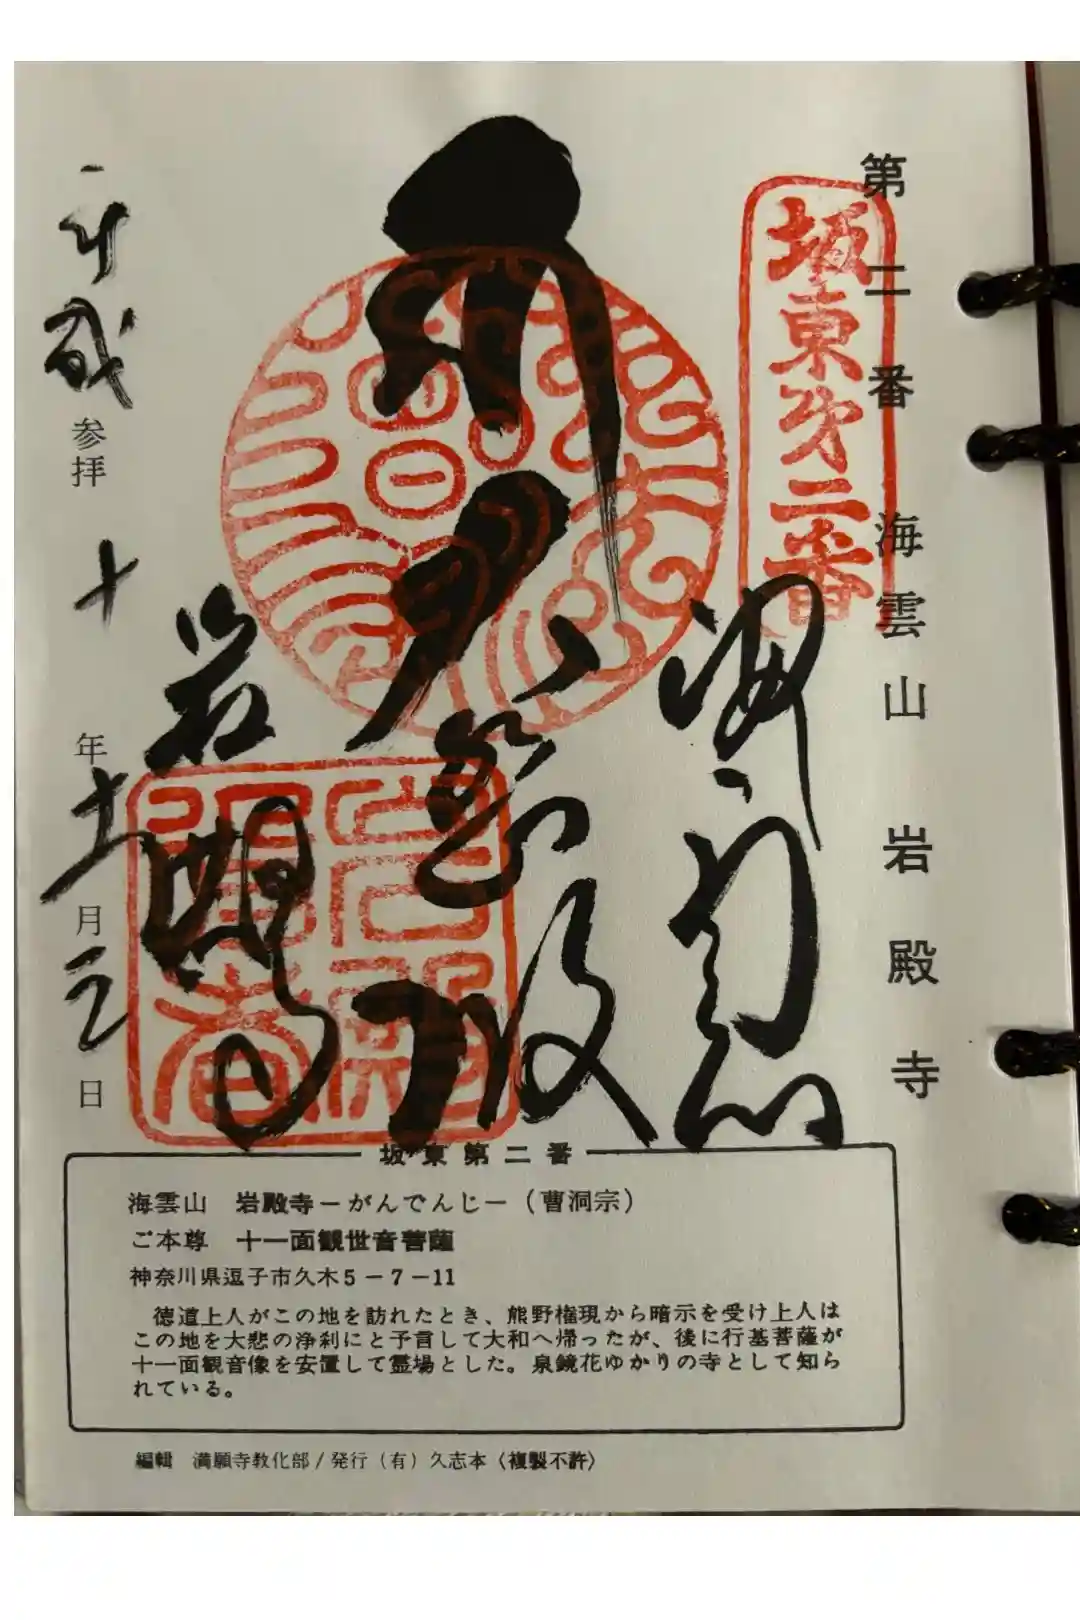 第二番 海雲山 岩殿寺
坂東第二番
海雲山
岩殿
平成 参拝 十 年 十一 月 三 日
坂東第二番
海雲山 岩殿寺－がんでんじ－（曹洞宗）
ご本尊 十一面観世音菩薩
神奈川県逗子市久木5－7－11
徳道上人がこの地を訪れたとき、熊野権現から暗示を受け上人は
この地を大悲の浄刹にと予言して大和へ帰ったが、後に行基菩薩が
十一面観音像を安置して霊場とした。泉鏡花ゆかりの寺として知ら
れている。
編輯 満願寺教化部/発行（有）久志本〈複製不許〉